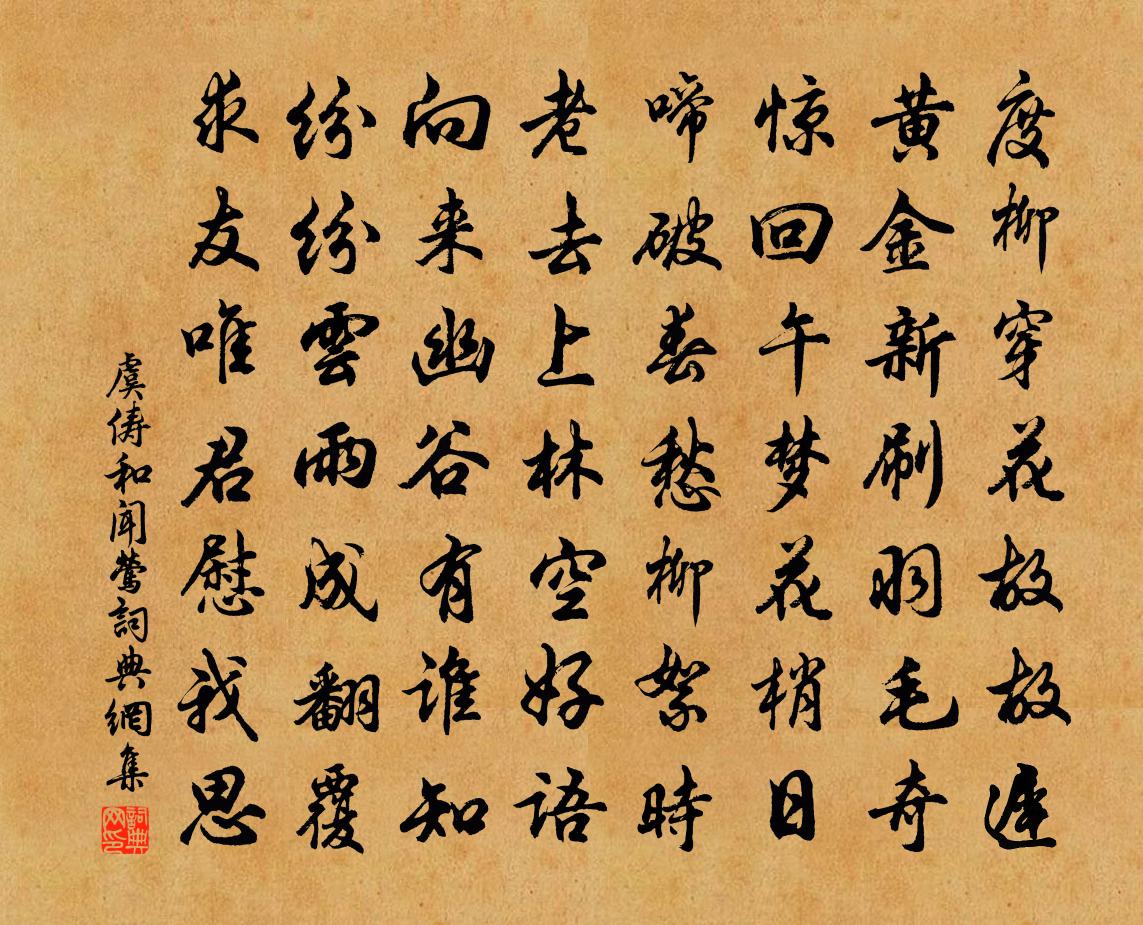 度柳穿花故故遲
黄金新刷羽毛奇
惊回午梦花梢日
啼破春愁柳絮時
老去上林空好語
向来幽谷有誰知
紛紛雲雨成翻覆
求友唯君慰我思
虞儔和闻鶯詞典網集
詞典网印